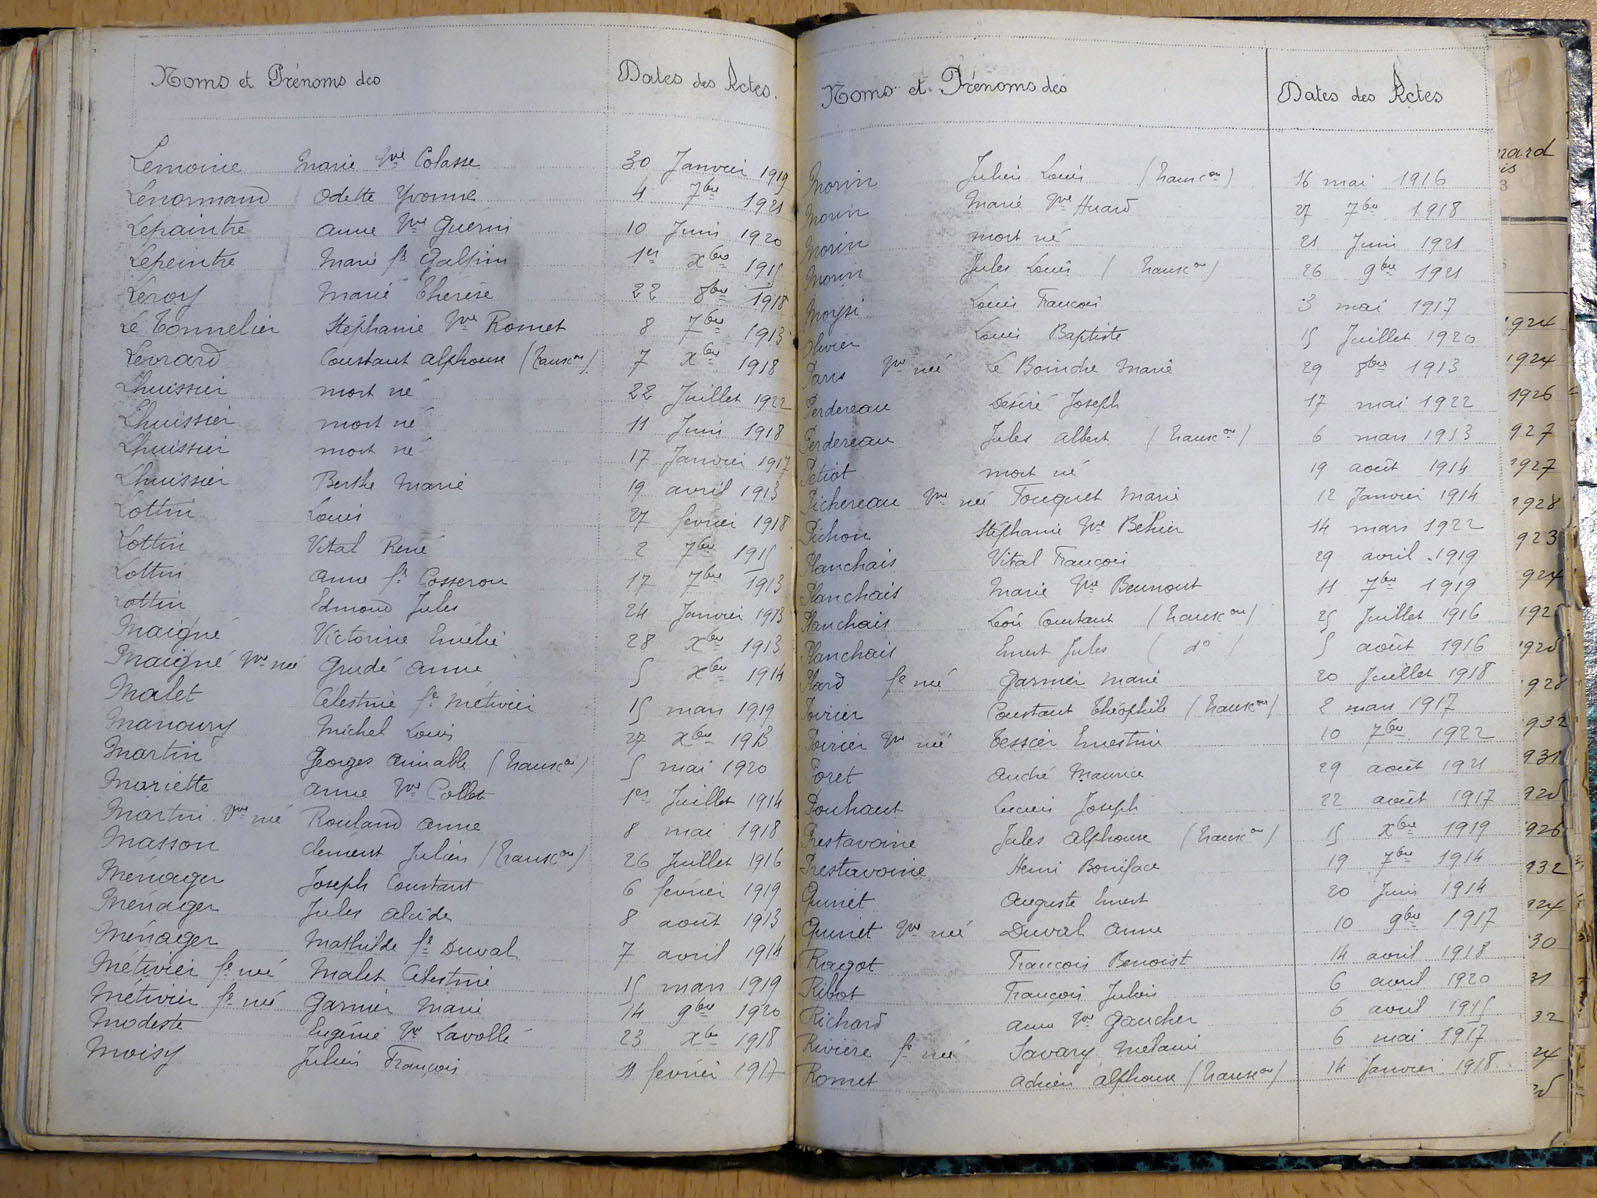 Noms et Prénoms des Dates des Actes.
Lemoine Marie Vve Colasse 30 Janvier 1919
Lenormand Odette Yvonne 4 7bre 1921
Lepaintre Anne Vve Guerin 10 Juin 1920
Lepeintre Marie fe Galpin 1er Xbre 1915
Leroy Marie Thérèse 22 8bre 1918
Le Tonnelier Stéphanie Vve Romet 8 7bre 1913
Levrard Constant Alphonse (Transcon) 7 Xbre 1918
Lhuissier mort né 22 Juillet 1922
Lhuissier mort né 11 Juin 1918
Lhuissier mort né 17 Janvier 1917
Lhuissier Berthe Marie 19 avril 1913
Lottin Louis 27 février 1918
Lottin Vital René 2 7bre 1915
Lottin Anne fe Cosseron 17 7bre 1913
Lottin Edmond Jules 24 Janvier 1913
Maigné Victorine Emélie 28 Xbre 1913
Maigné Vve née Grudé Anne 5 Xbre 1914
Malet Célestine fe Métivier 15 mars 1919
Manoury Michel Louis 27 Xbre 1913
Martin Georges Aimable (Transcon) 5 mai 1920
Mariette Anne Vve Collet 1er Juillet 1914
Martin Vve née Rouland Anne 8 mai 1918
Masson Clément Julien (Transcon) 26 Juillet 1916
Ménager Joseph Constant 6 février 1919
Ménager Jules Alcide 8 août 1913
Ménager Mathilde fe Duval 7 avril 1914
Métivier fe née Malet Célestine 15 mars 1919
Métivier fe née Garnier Marie 14 9bre 1920
Modeste Eugénie Vve Lavollé 23 Xbre 1918
Moisy Julien François 11 février 1917
Noms et Prénoms des Dates des Actes
Morin Julien Louis (Transcon) 16 mai 1916
Morin Marie Vve Huard 27 7bre 1918
Morin mort né 21 Juin 1921
Morin Jules Louis (Transcon) 26 9bre 1921
Moysi Louis François 3 mai 1917
Olivier Louis Baptiste 15 Juillet 1920
Paris Vve née Le Boindre Marie 29 8bre 1913
Perdereau Désiré Joseph 17 mai 1922
Perdereau Jules Albert (Transcon) 6 mars 1913
Petiot mort né 19 août 1914
Pichereau Vve née Fouquet Marie 12 Janvier 1914
Pichon Stéphanie Vve Behier 14 mars 1922
Planchais Vital François 29 avril 1919
Planchais Marie Vve Beunout 11 7bre 1919
Planchais Léon Constant (Transcon) 25 Juillet 1916
Planchais Ernest Jules (do) 5 août 1916
Plard fe née Garnier Marie 20 Juillet 1918
Poirier Constant Théophile (Transcon) 2 mars 1917
Poirier Vve née Tessier Ernestine 10 7bre 1922
Poret André Maurice 29 août 1921
Pouhaut Lucien Joseph 22 août 1917
Prestavoine Jules Alphonse (Transcon) 15 Xbre 1919
Prestavoine Henri Boniface 19 7bre 1914
Quinet Auguste Ernest 20 Juin 1914
Quinet Vve née Duval Anne 10 9bre 1917
Ragot François Benoist 14 avril 1918
Ribot François Julien 6 avril 1920
Richard Anne Vve Gaucher 6 avril 1915
Rivière fe née Savary Mélanie 6 mai 1917
Romet Adrien Alphonse (Transcon) 14 Janvier 1918